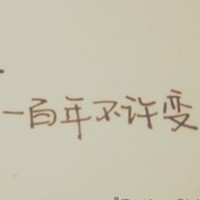 一百年不许变